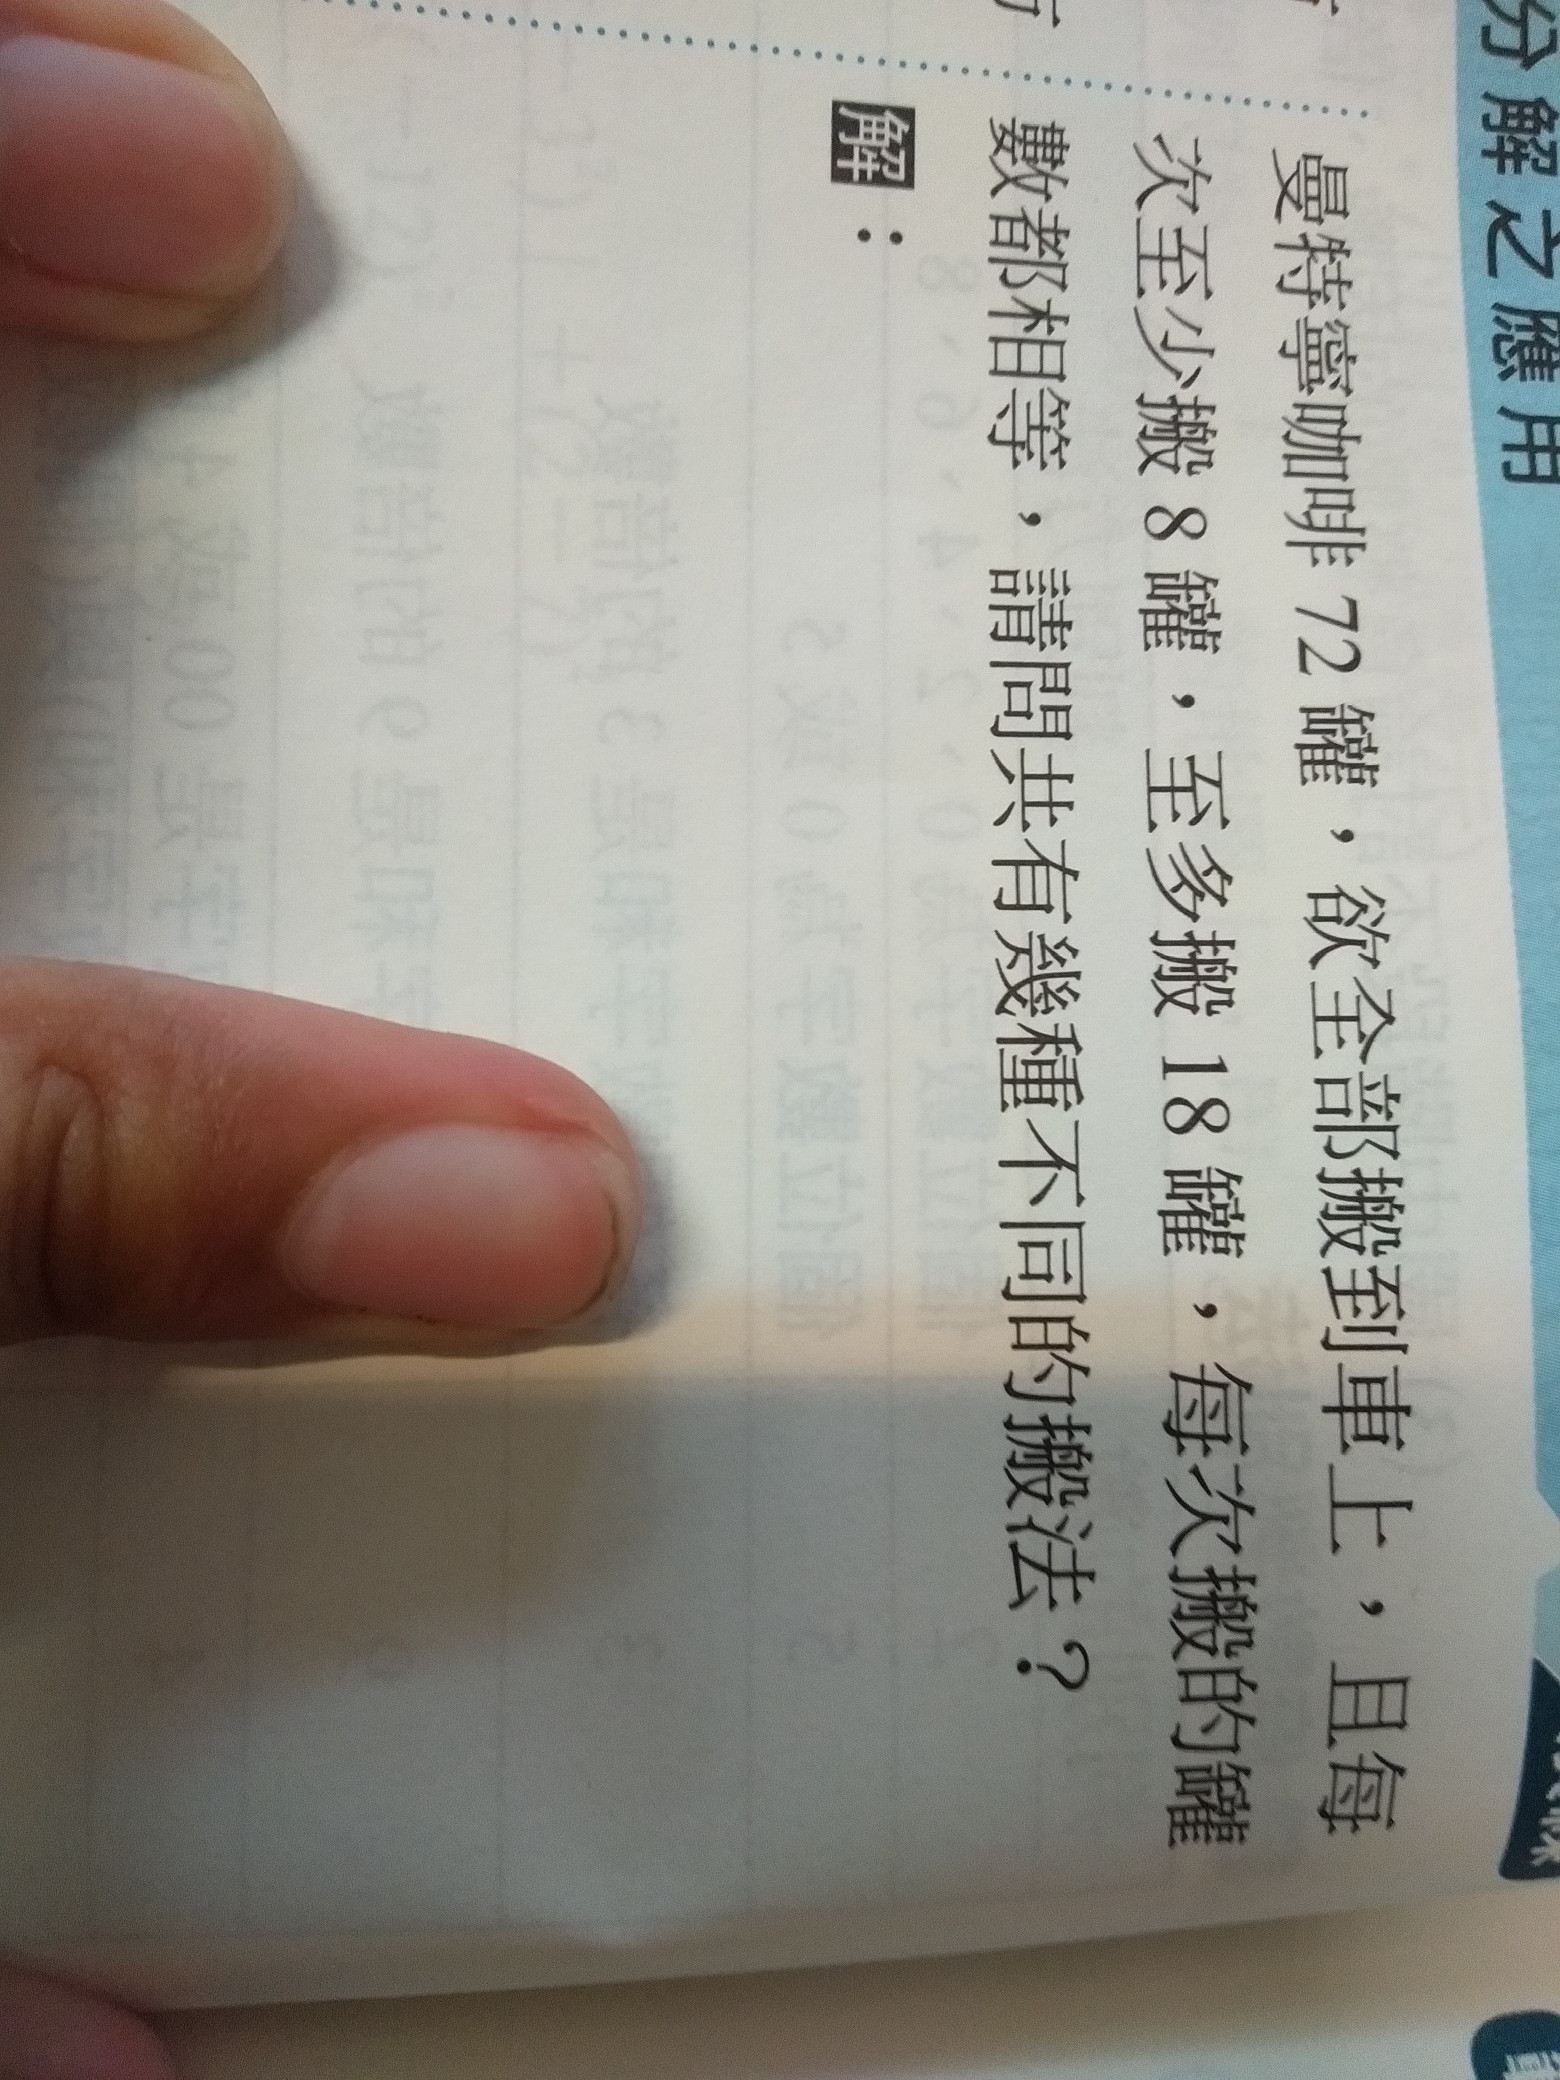 分解之應用
曼特寧咖啡 72 罐，欲全部搬到車上，且每
次至少搬 8 罐，至多搬 18 罐，每次搬的罐
數都相等，請問共有幾種不同的搬法？
解：